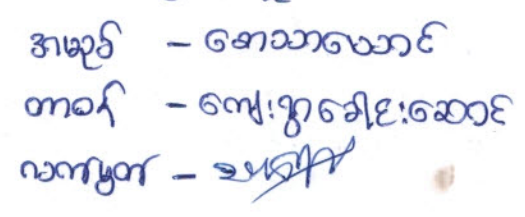 အမည် - စောသာလောင်
တာဝန် - ကျေးရွာခေါင်းဆောင်
လက်မှတ် -